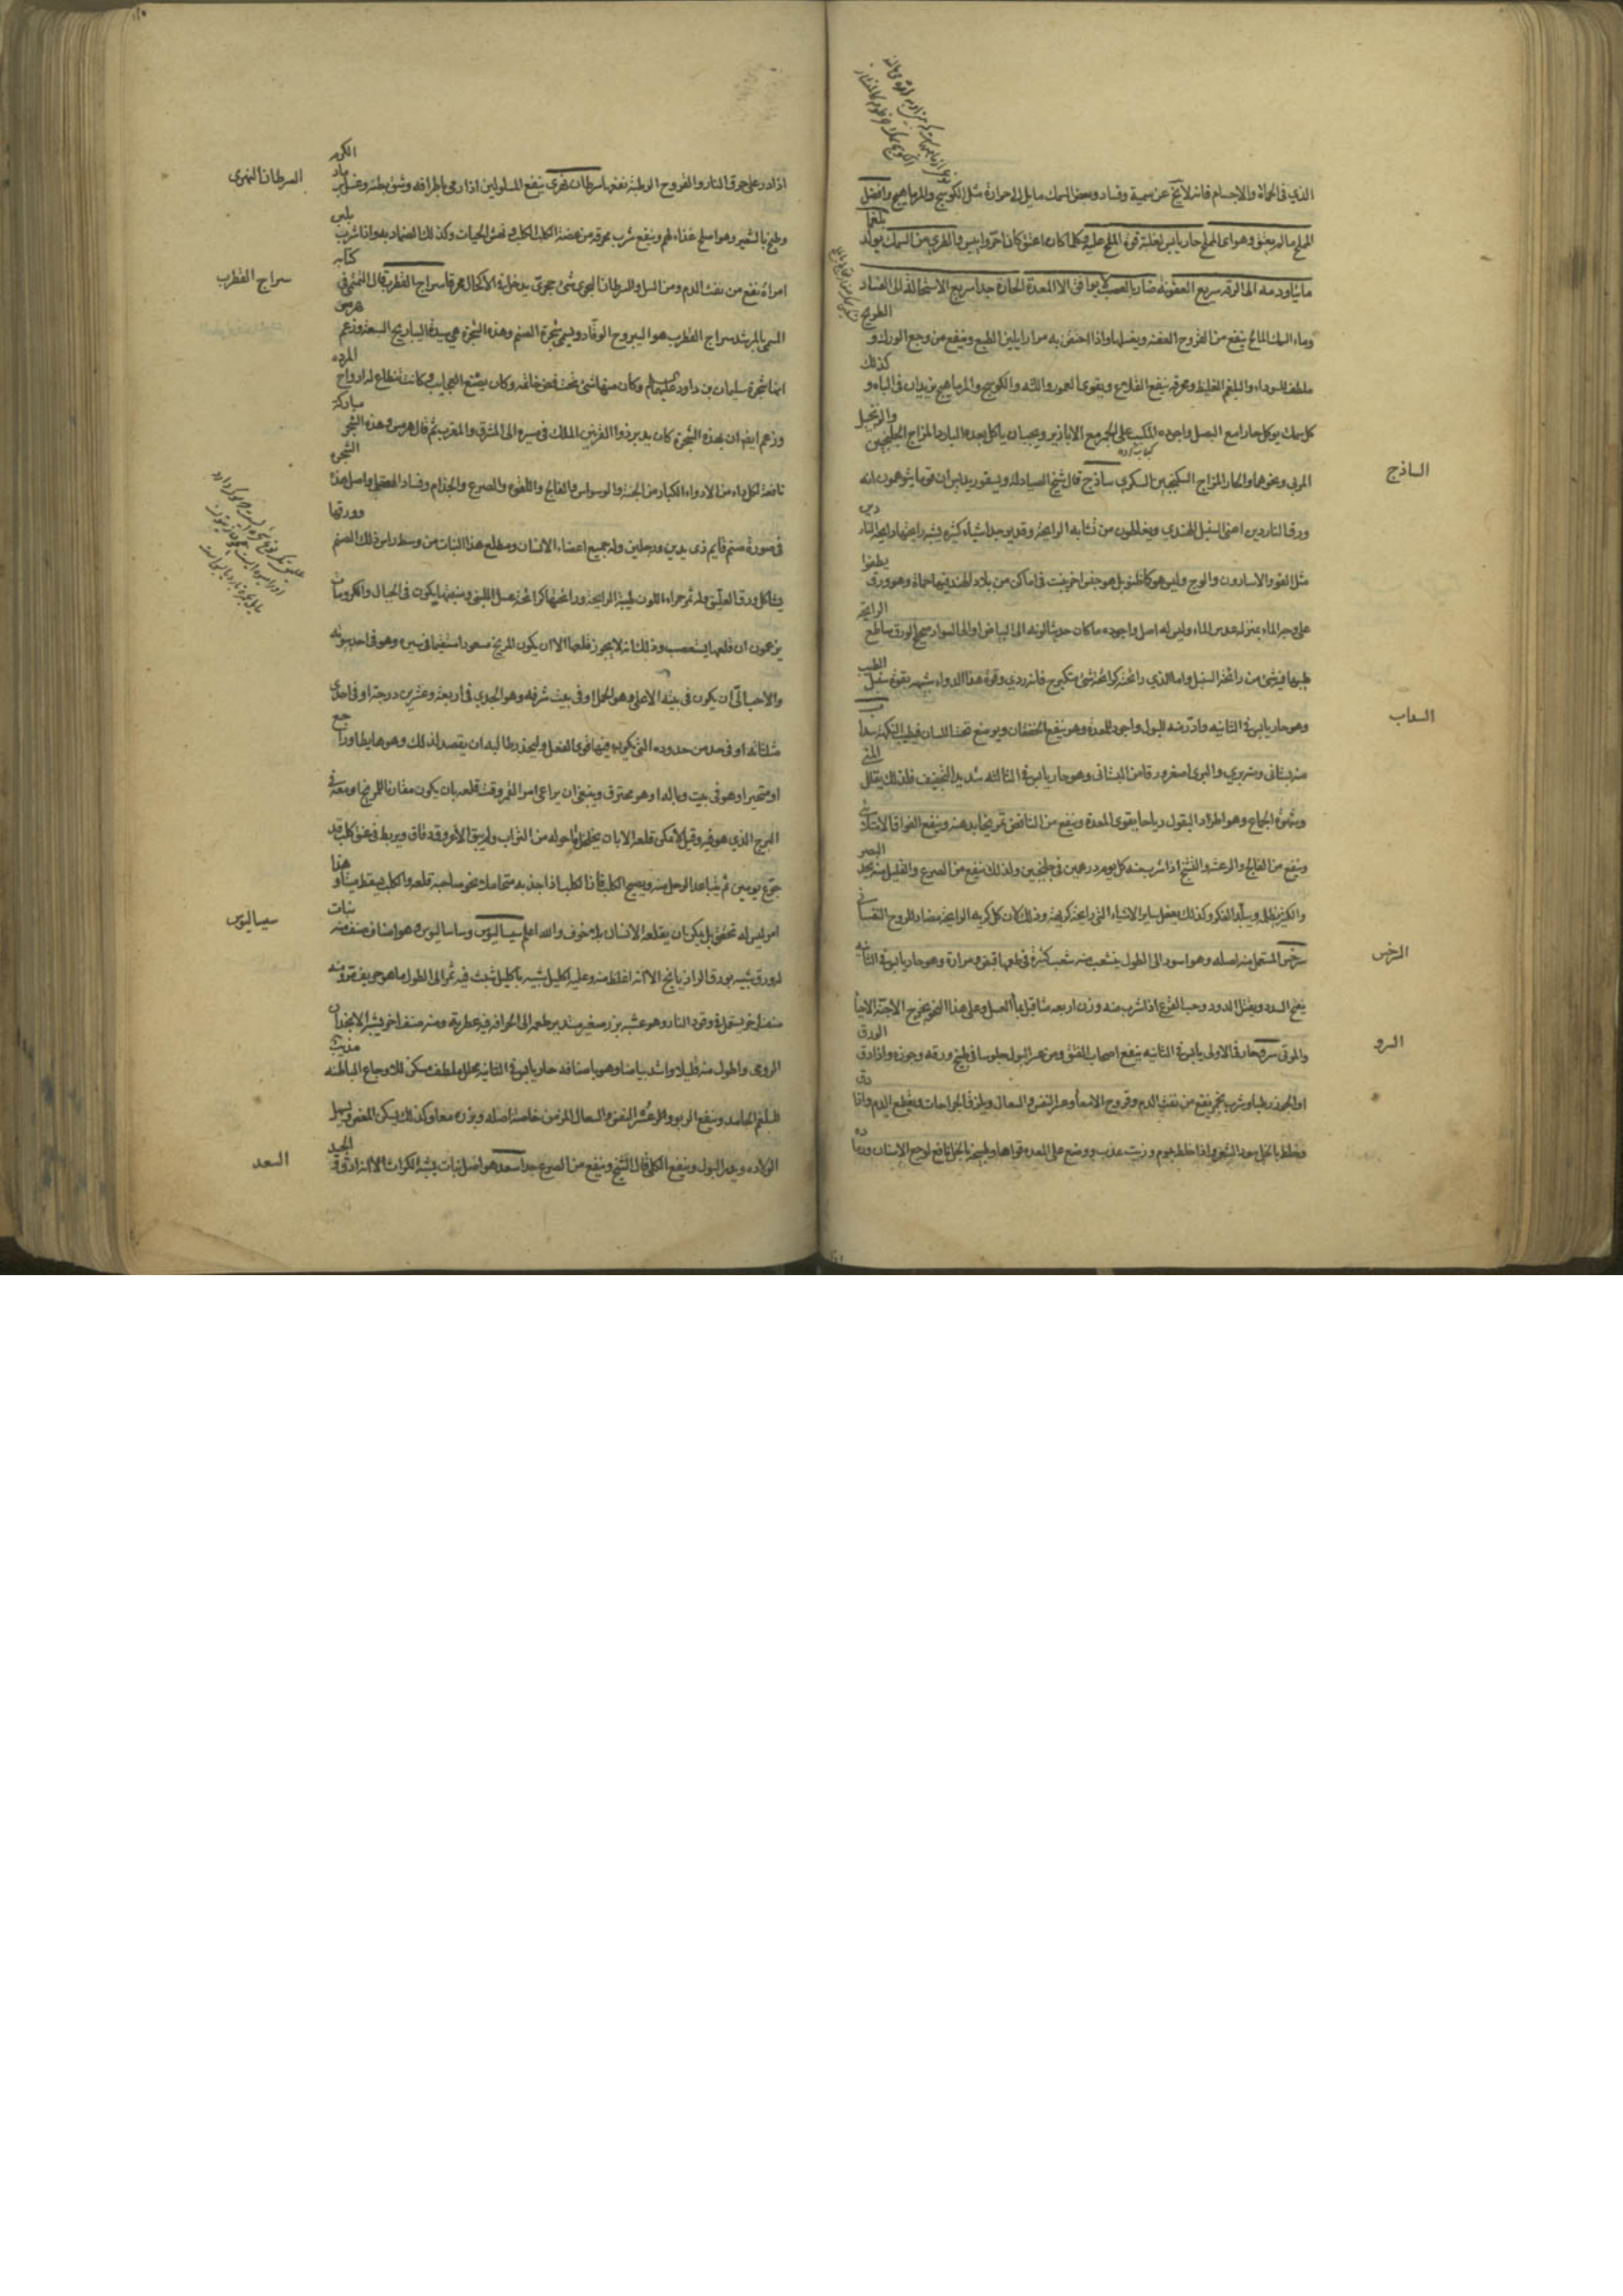 الذي في الحماة والاجسام فانه لا يخ عن سمية وفساد وبعض السمك مايل الى حرارة مثل الكوسج والمرماهيج وافضل
المملح ما لم يعتق وهو اى المملح حار يابس لغلبة قوة الملح عليه وكلما كان اعتق كان احر وايبس والطري من السمك يولد بلغما
مائيا ودمه الى الرقة سريع العفونة ضار بالعصب لا يوافق الا المعدة الحارة جدا سريع الاستحالة الى الفساد
وماء السمك المالح ينفع من القروح العفنة ويغسلها واذا احتقن به مرارا يلين الطبع وينفع من وجع الورك و الطريخ
ملطف للسوداء والبلغم الغليظ ومحرقه ينفع القلاع ويقوى العمور واللثه والكوسج والمرماهيج يزيدان في الباه و كذلك
كل سمك يوكل حارا مع البصل واجوده المكبب على الجمر مع الابازير ويجب ان ياكل بعده البارد المزاج الجلنجبين والزنجبيل
الساذج
المربى ونحوها والحار المزاج السكنجبين السكري ساذج قال شيخ الصيادله ديسقوريدس ان قوما يتوهمون انه
ورق الناردين اعنى السنبل الهندى ويغلطون من تشابه الرايحة وقد يوجد اشياء كثيره يشبه رايحتها رايحة النار
مثل الفو والاسارون والوج وليس هو كما ظنو بل هو جنس اخر ينبت في اماكن من بلاد الهند فيها حماة وهو ورق يطفوا
على وجه الماء بمنزله عدس الماء وليس له اصل واجوده ما كان حديثا لونه الى البياض او الى السواد صحيح الورق ساطع الرايحة
طيبها فيه شئ من رائحة السنبل واما الذي رائحته كرائحة شئ متكرج فانه ردي وقوة هذا الدواء شبيهه بقوة سنبل الطيب
السداب
وهو حار يابس في الثانيه وادر منه للبول واجود للمعدة وهو ينفع الخفقان ويوضع تحت اللسان فيطيب النكهة سدا ب
منه بستانى ومنه بري والبرى اصغر ورقا من البستانى وهو حار يابس في الثالثه شديد التجفيف فلذلك يقلل المنى
وشهوة الجماع وهو اطرد البقول رياحا يقوى المعدة وينفع من النافض تمريخا بدهنه وينفع الفواق الامتلائى
وينفع من الفالج والرعشة والتشنج اذا شرب منه كل يوم درهمين في جلنجبين ولذلك ينفع من الصرع والقليل منه يحد البصر
والكثير يظله ويبلد الفكر وكذلك يفعل ساير الاشياء التى رايحته كريهة وذلك لان كل كريه الرايحة مضاد للروح النفسانى
السرخس
سرخس المستعمل منه اصله وهو اسود الى الطول يتشعب منه شعب كثيرة في طعمها قبض ومرارة وهو حار يابس في الثانيه
يفتح السدد ويقتل الدود وحب القرع اذا شرب منه وزن اربعه مثاقيل بماء العسل وعلى هذا النحو يخرج الاجنة الاحيا
السرو
والموتى سرو حار في الاولى يابس في الثانيه ينفع اصحاب الفتق ومن عسر البول جلوسا في طبيخ ورقه وجوزه واذا دق الورق
او الجوز رطبا وشرب بخمر ينفع من نفث الدم وقروح الامعا وعسر النفس والسعال ويلزق الجراحات ويقطع الدم واذا دق
وخلط بالخل سود الشعر واذا خلط بموم وزيت عذب ووضع على المعده قواها وطبيخه بالخل نافع لوجع الاسنان ورما ده
السرطان النهرى
اذا ذر على حرق النار والقروح الرطبة نفعها سرطان نهرى ينفع المسلولين اذا رمى باطرافه وشق بطنه وغسل برماد الكرم
وطبخ بالشعير وهو اصلح غذاء لهم وينفع شرب محرقه من عضة الكلب الكلب ونهش الحيات وكذلك الضماد به واذا شرب بلبن
سراج القطرب
امراة نفع من نفث الدم ومن السل والسرطان البحرى شئ حجرى يدخل في الاكحال محرقا سراج القطرب قال التميمى في كتابه
المسمى بالمرشد سراج القطرب هو اليبروح الوقاد ويسمى شجرة الصنم وهذه الشجرة هى سيدة اليباريح السبعة وزعم هرمس
انها شجرة سليمان بن داود عليهما السلام وكان منها شئ تحت فص خاتمه وكان يصنع العجايب وكانت تنطاع له ارواح المرده
وزعم ايضا ان بهذه الشجرة كان يدبر ذوا القرنين الملك في مسيره الى المشرق والمغرب ثم قال هرمس وهذه الشجر مباركة
نافعة لكل داء من الادواء الكبار من الجنة والوسواس والفالج واللقوه والصرع والجذام وفساد العقل واصل هذه الشجره
في صورة صنم قايم ذى يدين ورجلين وله جميع اعضاء الانسان ومطلع هذا النبات من وسط راس ذلك الصنم وورقها
يشاكل ورق العليق وله ثمر حمراء اللون طيبة الرايحة ورائحتها كرائحة عسل اللبنى ومنبتها يكون في الجبال والكرومات
يزعمون ان قلعها يستصعب وذلك انه لا يجوز قلعها الا ان يكون المريخ مسعودا مستقيما في سيره وهو في احد بيوته
والاحب الى ان يكون في بيته الاعلى وهو الحمل او في بيت شرفه وهو الجدي في اربعة وعشرين درجة او في احدى
مثلثاته او في حد من حدوده التى يكون فيها قوى الفعل وليحذر طالبه ان يقصد لذلك وهو هابط او راجع
او متحير او هو في بيت وباله او هو محترق وينبغى ان يراعى امر القمر وقت قلعه بان يكون مقارنا للمريخ او معه في
البرج الذي هو فيه وقيل لا يمكن قلعه الا بان يخلخل ما حوله من التراب ولم يبق الا عروقه دقاق ويربط في عنق كلب قد
جوع يومين ثم يتباعد الرجل منه ويصيح الكلب فاذا الكلب اذا جذبه متحاملا نحو صاحبه قلعه والكلب يسقط ميتا و هذا
سيساليوس
امر ليس له تحقق بل يمكن ان يقلعه الانسان بلا خوف والله اعلم سيساليوس وساساليوس هو اصناف صنف منه نبات
له ورق شبيه بورق الرازيانج الا انه اغلظ منه وعليه اكليل شبيه باكليل شبث فيه ثمر الى الطول ما هو حريف ومنه
صنف اخر يستعمل في وقود النار وهو عشبه بزر صغير مستدير طعمه الى الحرافة فيه عطرية ومنه صنف اخر يشبه الانجدان
الرومى واطول منه قليلا واشد بياضا وهو باصنافه حار يابس في الثانية محلل ملطف مسكن للاوجاع الباطنه مذيب
للبلغم الجامد وينفع الربو وعسر النفس والسعال المزمن خاصة اصله وبزره معا وكذلك يسكن المغص ويسهل
السعد
الولاده ويدر البول وينفع الكلى قال الشيخ وينفع من الصرع جدا سعد هو اصل نبات يشبه الكراث الا انه ادق و الجيد